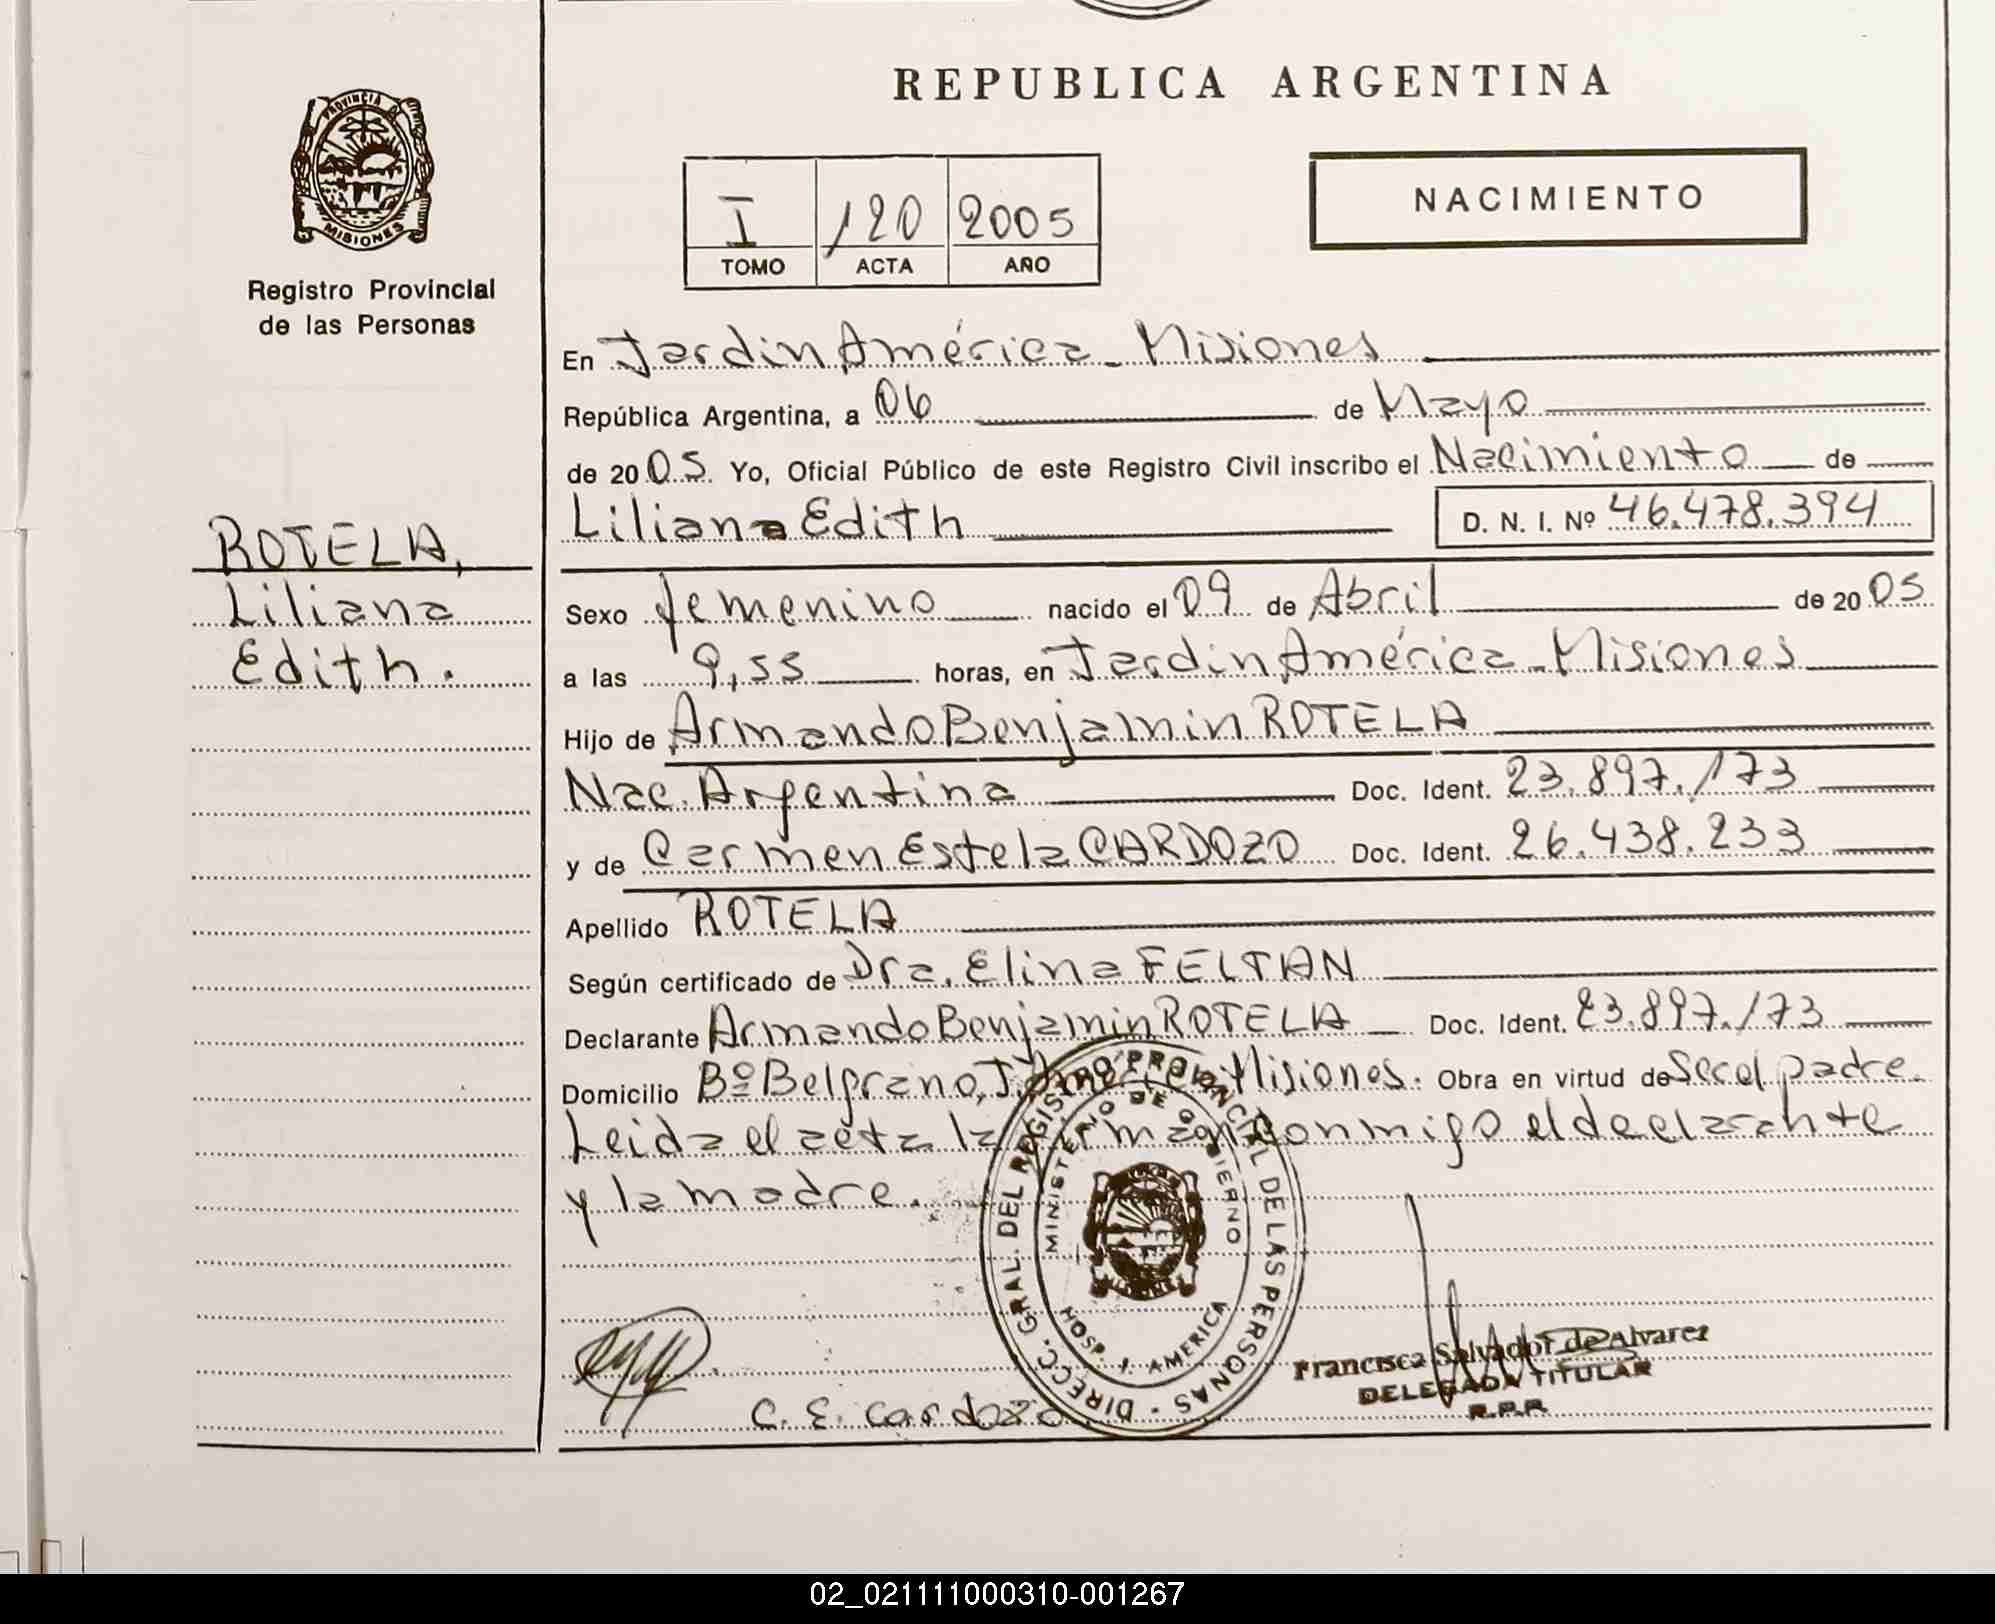 REPUBLICA ARGENTINA
PROVINCIA D
MISIONES
Registro Provincial
de las Personas
I 120 2005
TOMO ACTA AÑO
NACIMIENTO
En Jardin América - Misiones
República Argentina, a 06 de Mayo
de 2005. Yo, Oficial Público de este Registro Civil inscribo el Nacimiento de
Liliana Edith D. N. I. Nº 46.478.394
ROTELA,
Liliana
Edith.
Sexo femenino nacido el 09 de Abril de 2005
a las 9,55 horas, en Jardin América - Misiones
Hijo de Armando Benjamin ROTELA
Nac. Argentina Doc. Ident. 23.897.173
y de Carmen Estela CARDOZO Doc. Ident. 26.438.233
Apellido ROTELA
Según certificado de Dra. Elina FELTAN
Declarante Armando Benjamin ROTELA Doc. Ident. 23.897.173
Domicilio Bº Belgrano, J. Misiones. Obra en virtud de Ser el padre.
Leida el acta la firman conmigo el declarante
y la madre.
DIRECC. GRAL. DEL REGISTRO PROVINCIAL DE LAS PERSONAS
MINISTERIO DE GOBIERNO
HOSP. J. AMERICA
C. E. Cardozo
Francisca Salvador de Alvarez
DELEGADA TITULAR
R.P.P.
02_021111000310-001267